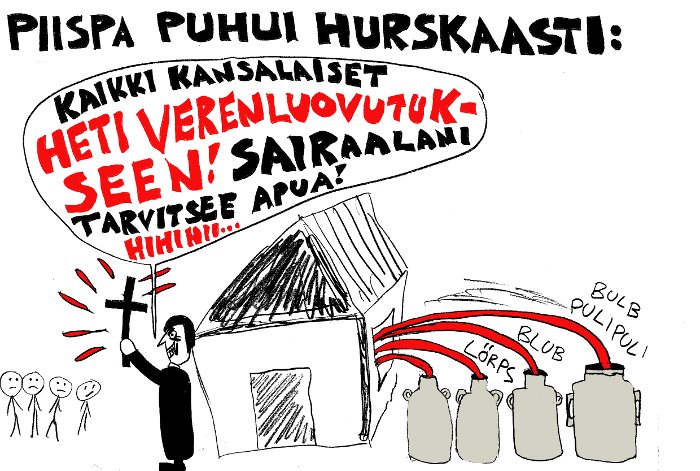 PIISPA PUHUI HURSKAASTI:
KAIKKI KANSALAISET
HETI VERENLUOVUTUK-
SEEN! SAIRAALANI
TARVITSEE APUA!
HIHIHII...
BULB
PULIPULI
BLUB
LÖRPS